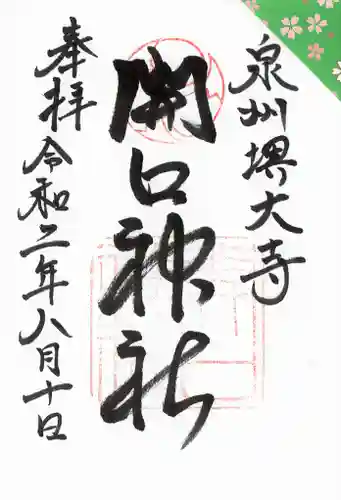 泉州堺大寺
開口神社
奉拝
令和二年八月十日